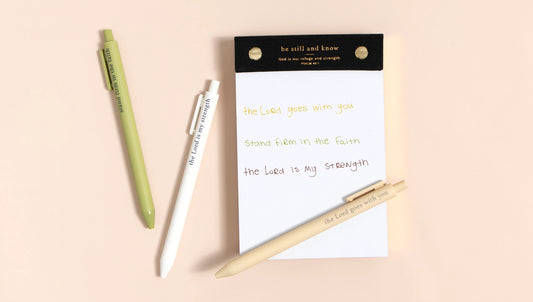 be still and know
God is our refuge and strength
PSALM 46:1
the Lord goes with you
stand firm in the faith
the Lord is my strength
stand firm in the faith
the Lord is my strength
the Lord goes with you